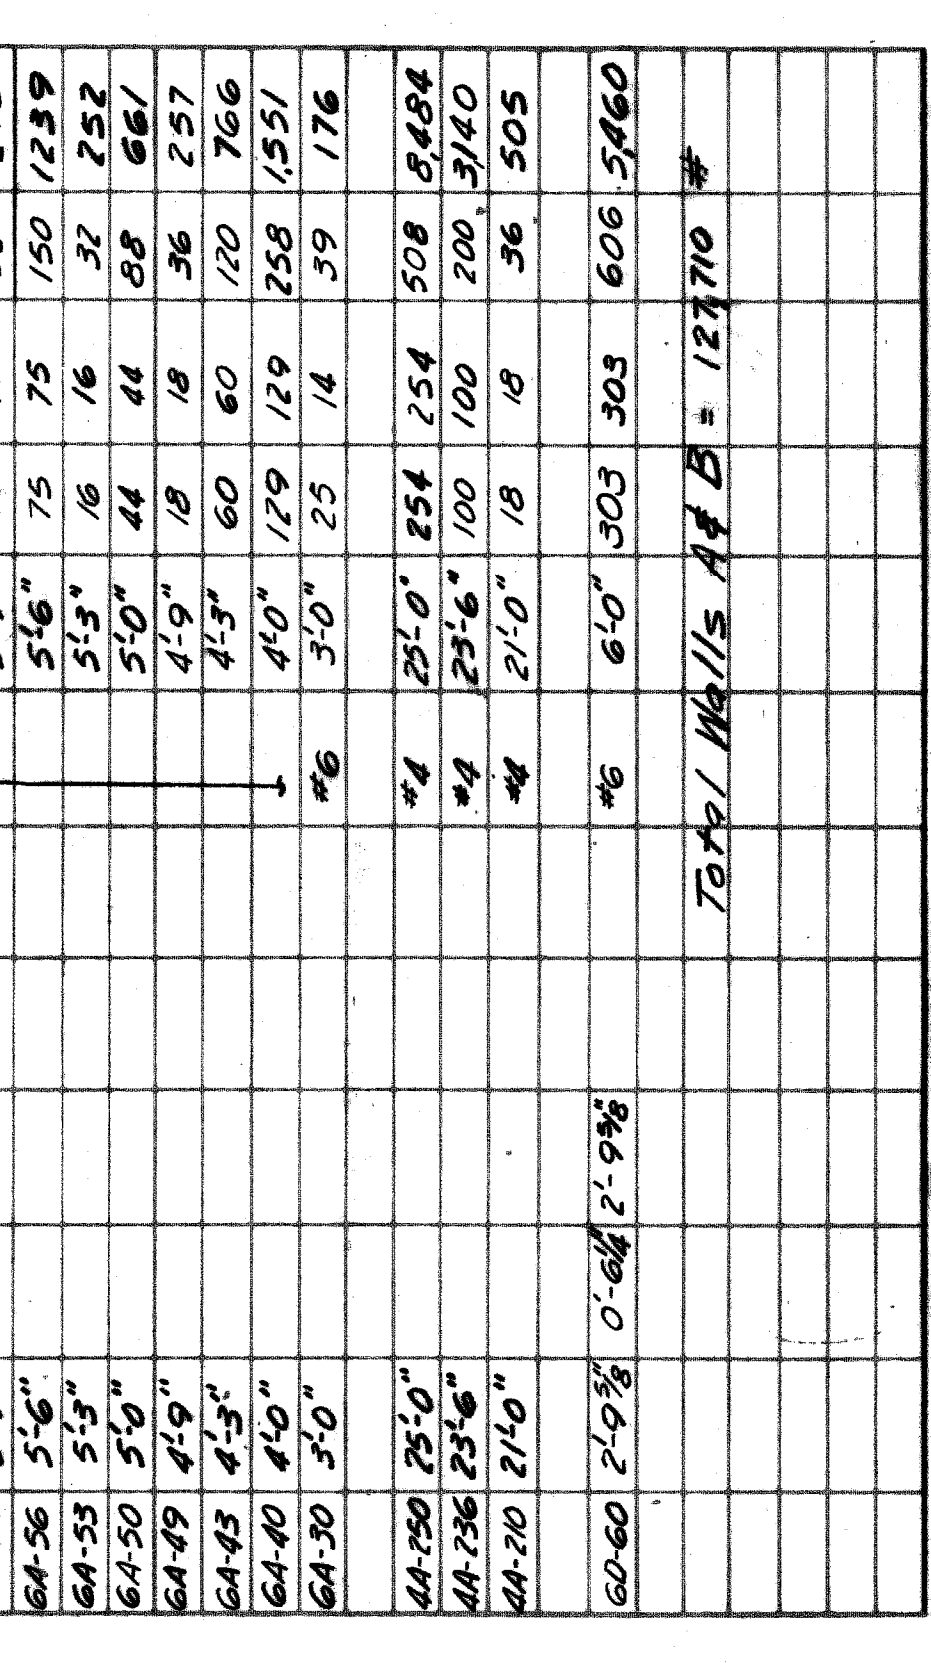 6A-56 5'-6" 5'-6" 75 75 150 1239
6A-53 5'-3" 5'-3" 16 16 32 252
6A-50 5'-0" 5'-0" 44 44 88 661
6A-49 4'-9" 4'-9" 18 18 36 257
6A-43 4'-3" 4'-3" 60 60 120 766
6A-40 4'-0" 4'-0" 129 129 258 1,551
6A-30 3'-0" #6 3'-0" 25 14 39 176
4A-250 25'-0" #4 25'-0" 254 254 508 8,484
4A-236 23'-6" #4 23'-6" 100 100 200 3,140
4A-210 21'-0" #4 21'-0" 18 18 36 505
6D-60 2'-9 5/8" 0'-6 1/4" 2'-9 5/8" #6 6'-0" 303 303 606 5,460
Total Walls A & B = 127,710 #